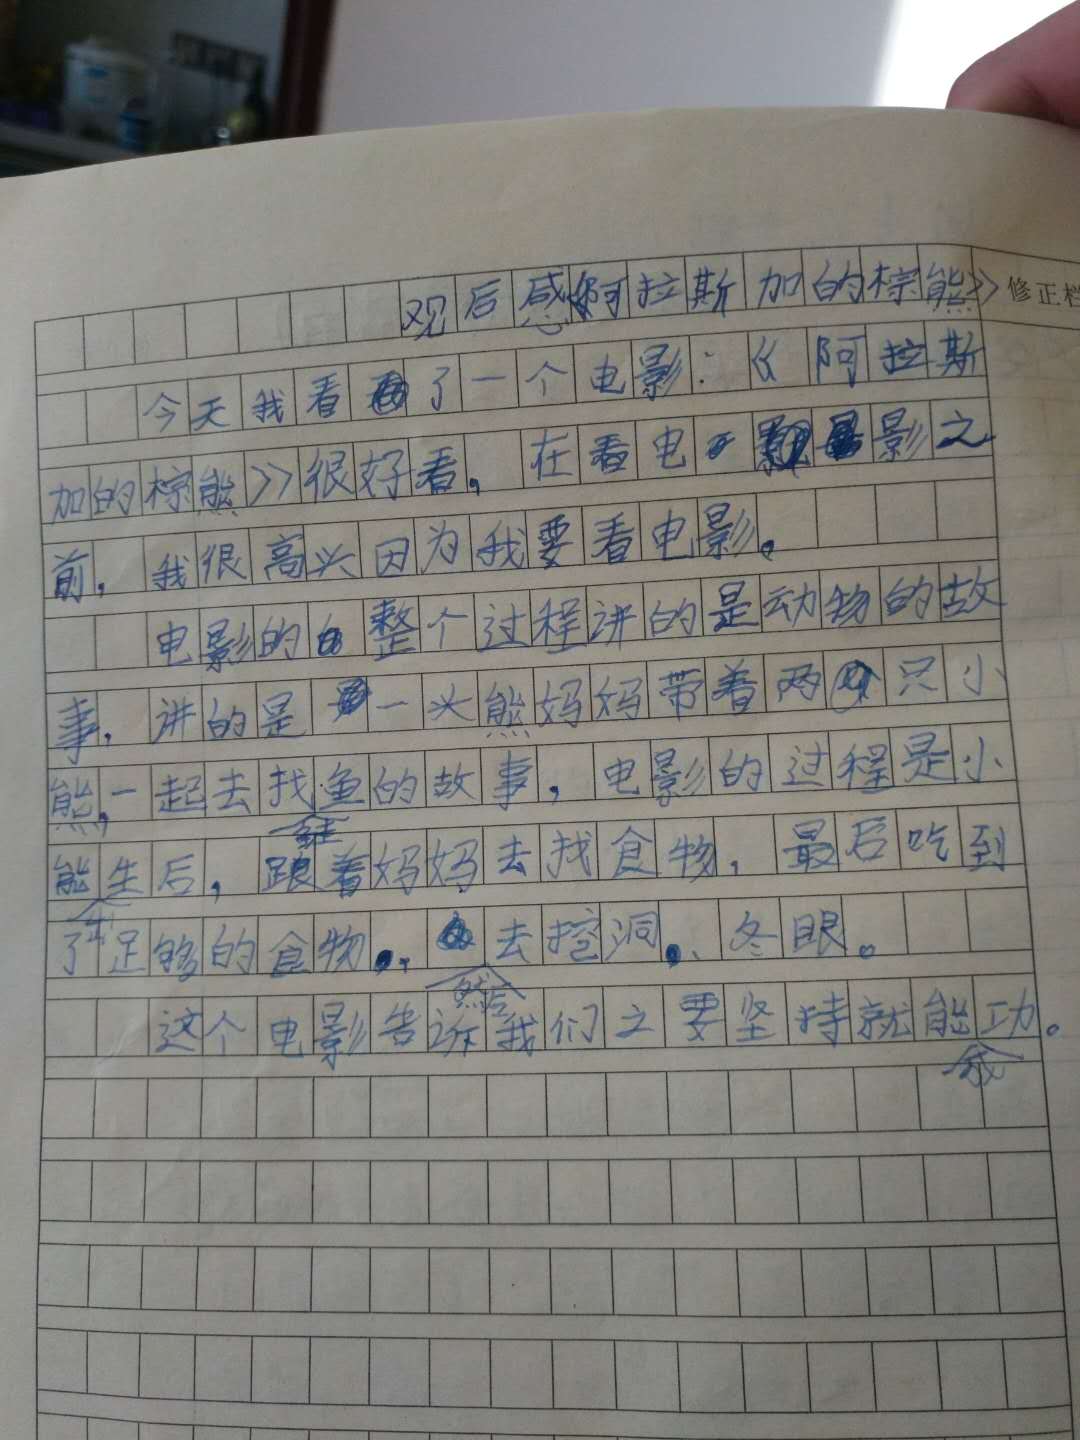 观后感《阿拉斯加的棕熊》
修正栏
今天我看了一个电影：《阿拉斯
加的棕熊》很好看。在看电影之
前，我很高兴因为我要看电影。
电影的整个过程讲的是动物的故
事，讲的是一头熊妈妈带着两只小
熊，一起去找鱼的故事，电影的过程是小
熊出生后，跟着妈妈去找食物，最后吃到
了足够的食物，然后去挖洞、冬眠。
这个电影告诉我们之要坚持就能成功。